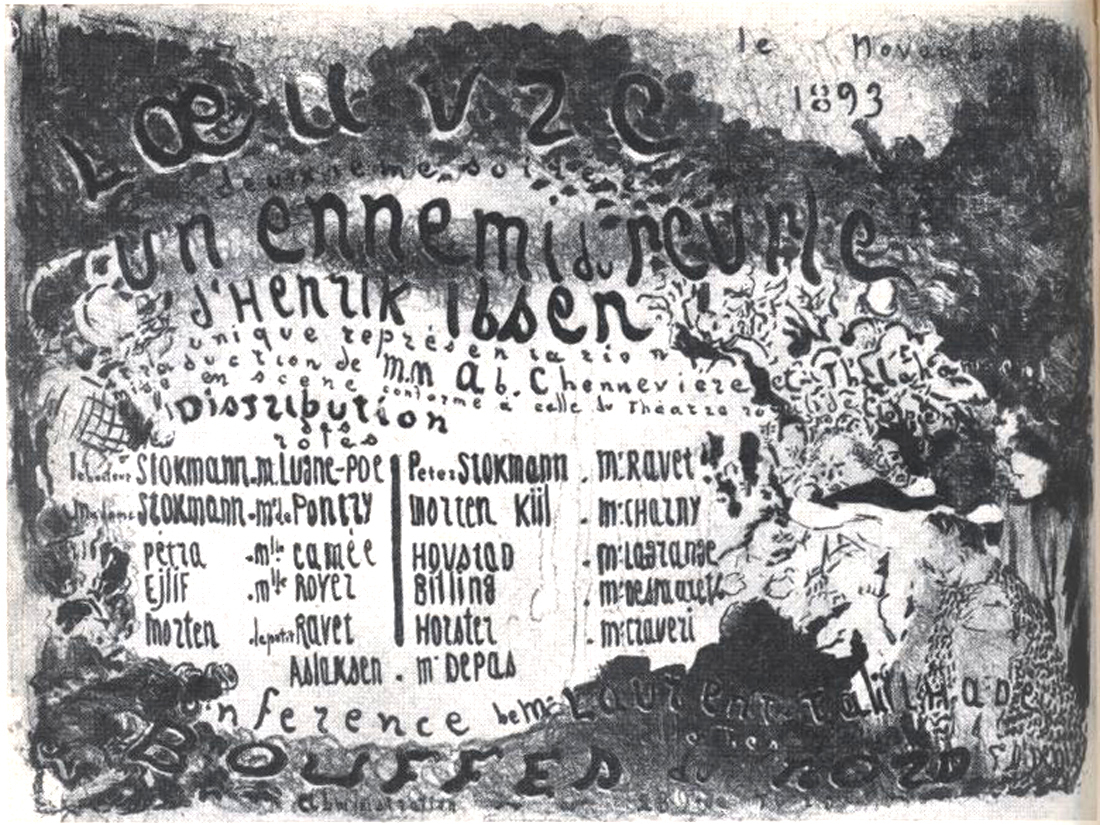 le Novembre
1893
L'œuvre
deuxieme soirée
un ennemi du peuple
d'Henrik Ibsen
unique représentation
traduction de M.M Ad. Chenneviere et
mise en scène conforme à celle du Théatre
Distribution
des
rôles
le docteur Stokmann. m. Lugné-Poe Peter Stokmann. Mr. Ravet
Madame Stokmann. Mme de Pontry Morten Kiil. Mr. Charny
Petra. Mlle Camée Hovstad. Mr. Lagrange
Ejlif. Mlle Royer Billing. Mr. Desmarets
Morten. le petit Ravet Horster. Mr. Craveri
Aslaksen. Mr Depas
Conférence de Mr Laurent Tailhade
BOUFFES du NORD
Administration